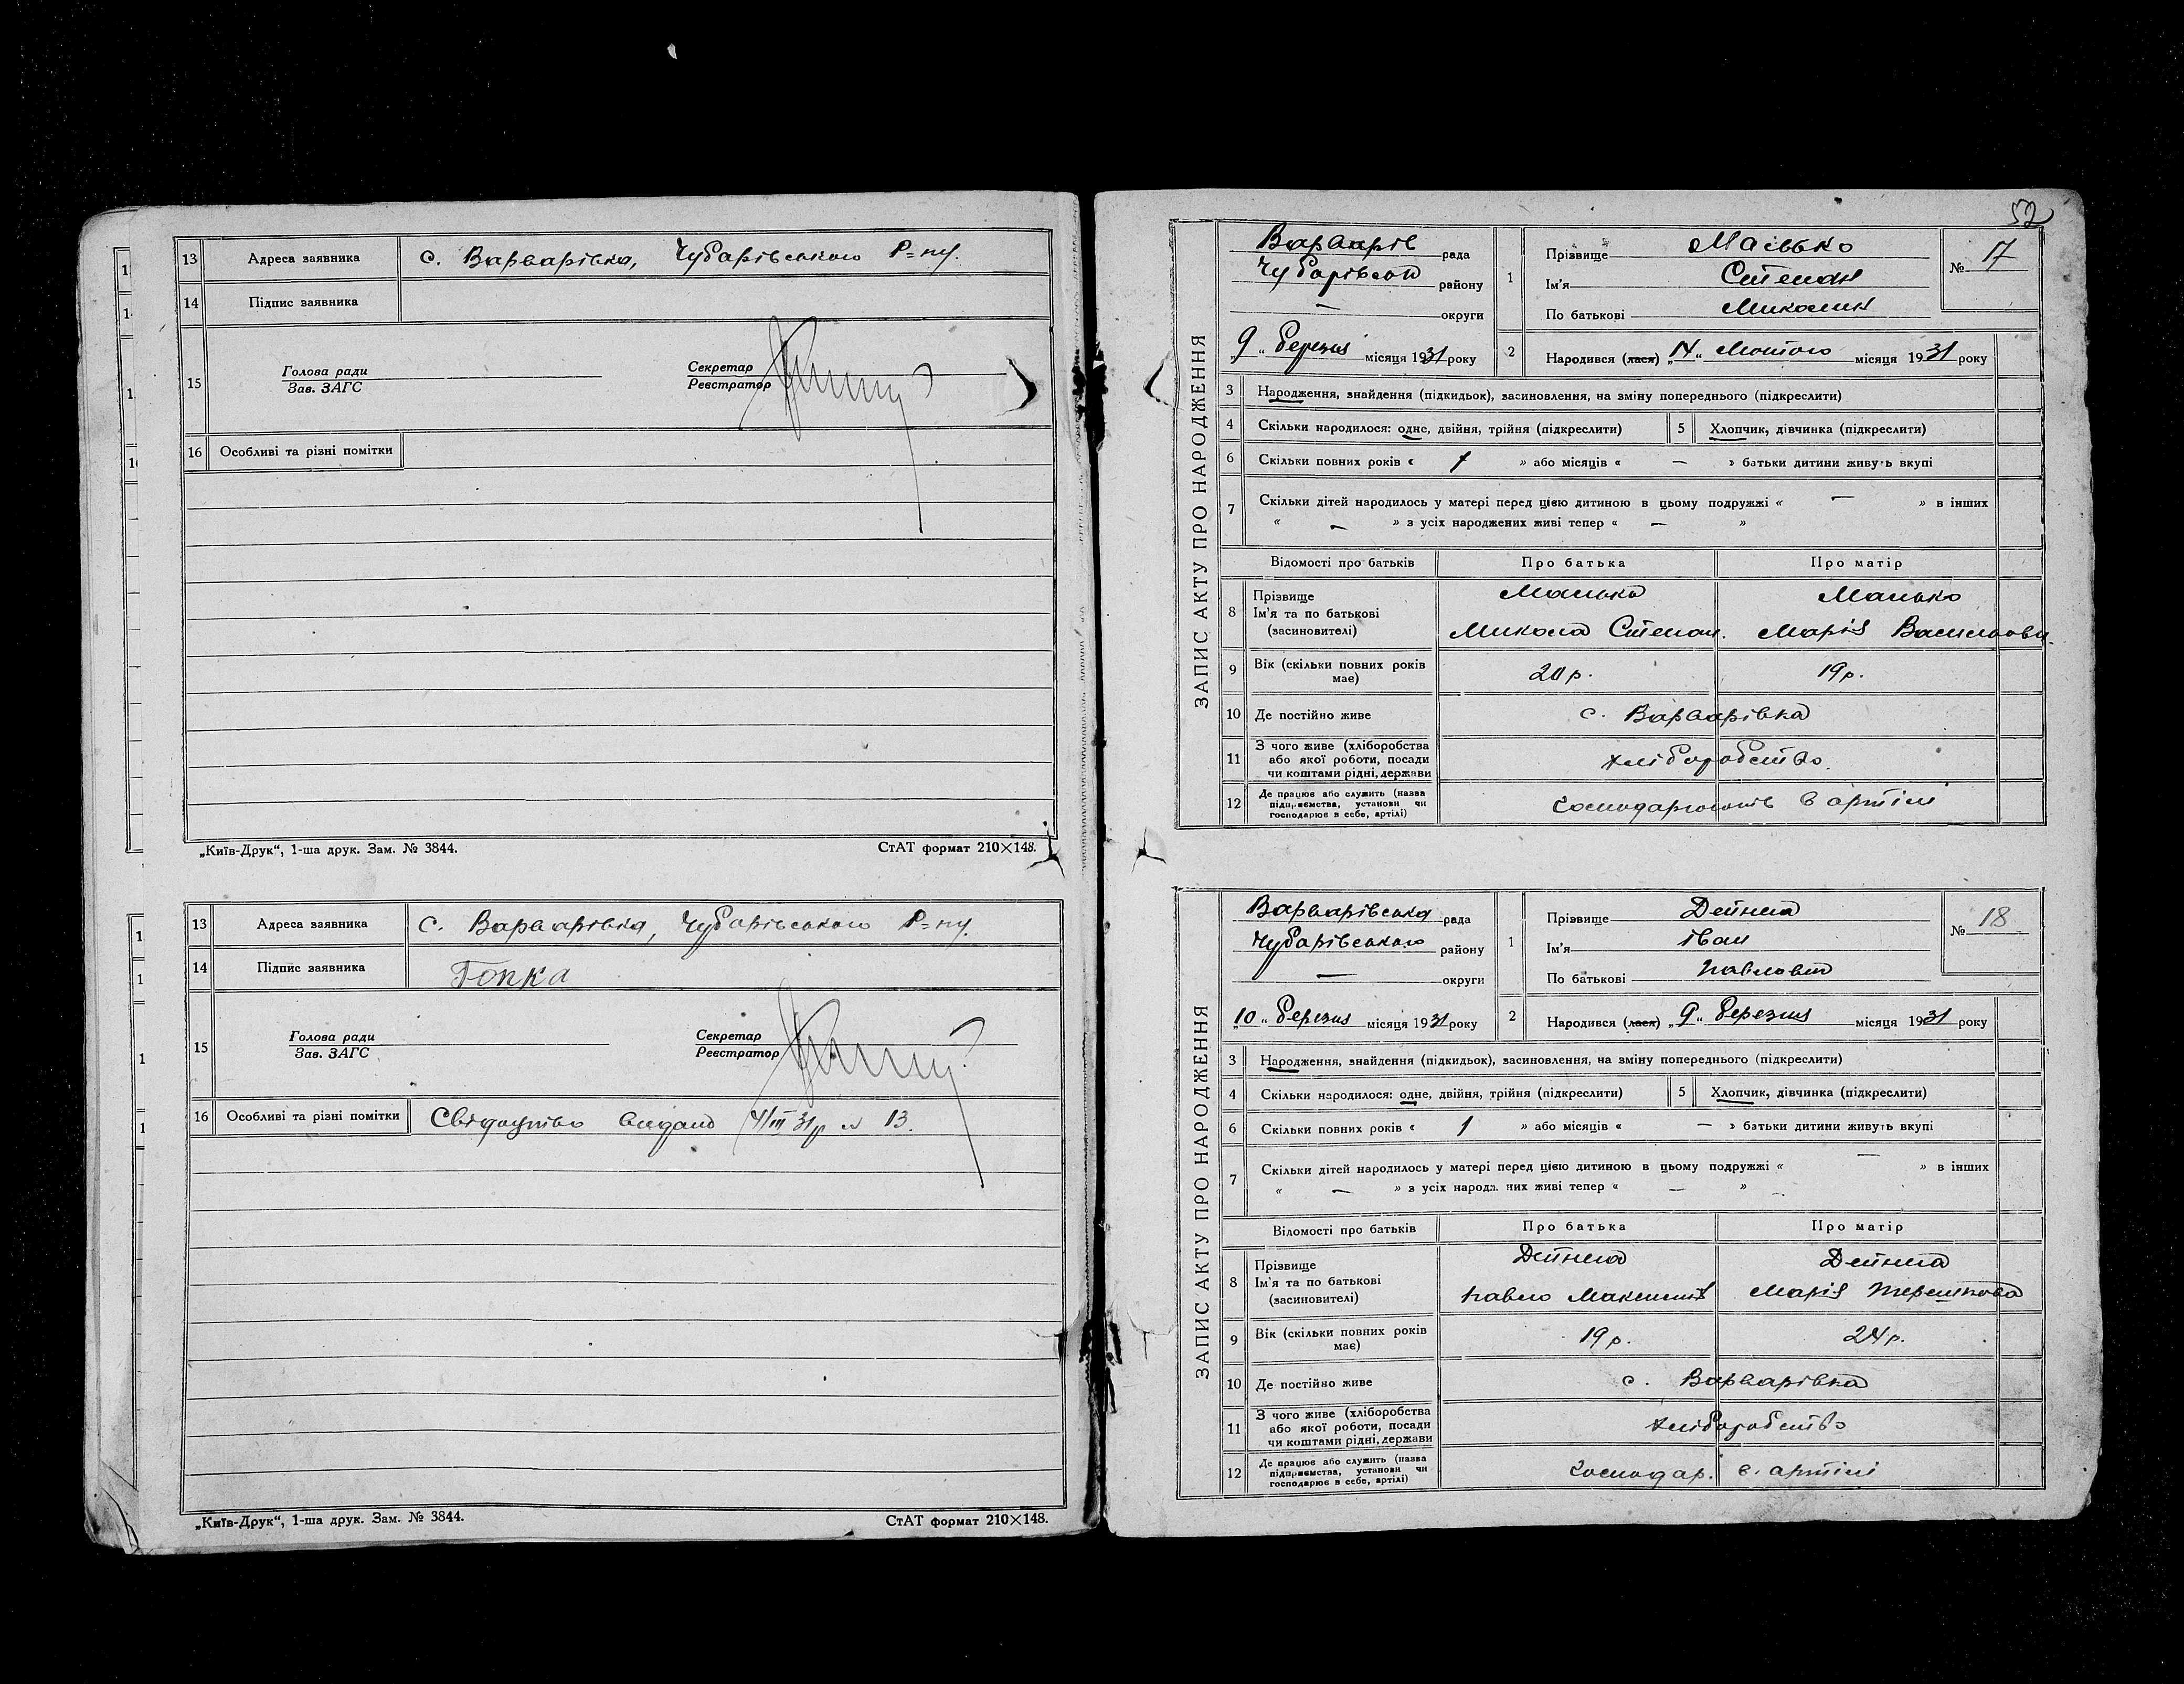 13 Адреса заявника с. Варварівка, Чубарівського Р=ну.
14 Підпис заявника
15 Голова ради Секретар
Зав. ЗАГС Реєстратор
16 Особливі та різні помітки
„Київ-Друк“, 1-ша друк. Зам. № 3844. СтАТ формат 210×148.
13 Адреса заявника с. Варварівка, Чубарівського Р=ну.
14 Підпис заявника Гопка
15 Голова ради Секретар
Зав. ЗАГС Реєстратор
16 Особливі та різні помітки Свідоцтво видано 4/III 31р № 13.
„Київ-Друк“, 1-ша друк. Зам. № 3844. СтАТ формат 210×148.
52
ЗАПИС АКТУ ПРО НАРОДЖЕННЯ
Варварів рада
Чубарівськ району
— округи
„9“ березня місяця 1931 року
1 Прізвище Масько
Ім'я Степан
По батькові Миколин
№ 17
2 Народився (лася) „14“ Лютого місяця 1931 року
3 Народження, знайдення (підкидьок), засиновлення, на зміну попереднього (підкреслити)
4 Скільки народилося: одне, двійня, трійня (підкреслити) 5 Хлопчик, дівчинка (підкреслити)
6 Скільки повних років « 1 » або місяців « — » батьки дитини живуть вкупі
7 Скільки дітей народилось у матері перед цією дитиною в цьому подружжі « — » в інших
« — » з усіх народжених живі тепер « — »
Відомості про батьків Про батька Про матір
8 Прізвище Масько Масько
Ім'я та по батькові
(засиновителі) Микола Степан. Марія Васильовн.
9 Вік (скільки повних років має) 20 р. 19 р.
10 Де постійно живе с. Варварівка
11 З чого живе (хліборобства
або якої роботи, посади
чи коштами рідні, держави хліборобство.
12 Де працює або служить (назва
підприємства, установи чи
господарює в себе, артілі) господарюють в артілі
ЗАПИС АКТУ ПРО НАРОДЖЕННЯ
Варварівська рада
Чубарівського району
— округи
„10“ березня місяця 1931 року
1 Прізвище Дейнега
Ім'я Іван
По батькові Павлович
№ 18
2 Народився (лася) „9“ березня місяця 1931 року
3 Народження, знайдення (підкидьок), засиновлення, на зміну попереднього (підкреслити)
4 Скільки народилося: одне, двійня, трійня (підкреслити) 5 Хлопчик, дівчинка (підкреслити)
6 Скільки повних років « 1 » або місяців « — » батьки дитини живуть вкупі
7 Скільки дітей народилось у матері перед цією дитиною в цьому подружжі « — » в інших
« — » з усіх народжених живі тепер « — »
Відомості про батьків Про батька Про матір
8 Прізвище Дейнега Дейнега
Ім'я та по батькові
(засиновителі) Павло Максимів Марія Терешкова
9 Вік (скільки повних років має) 19 р. 24 р.
10 Де постійно живе с. Варварівка
11 З чого живе (хліборобства
або якої роботи, посади
чи коштами рідні, держави хліборобство
12 Де працює або служить (назва
підприємства, установи чи
господарює в себе, артілі) господар. в. артілі